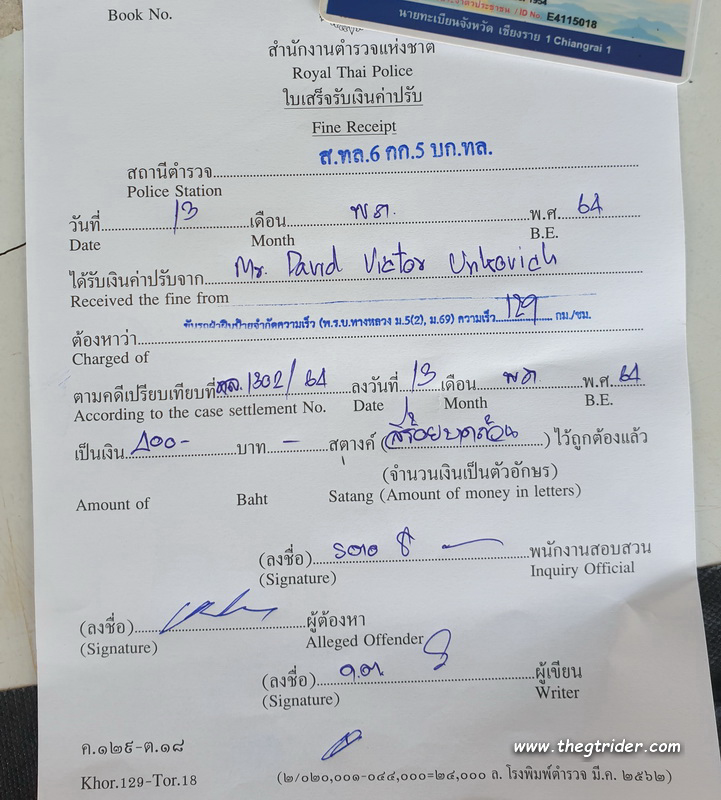 1954
ประจำตัวประชาชน / ID No. E4115018
นายทะเบียนจังหวัด เชียงราย 1 Chiangrai 1
Book No.
สำนักงานตำรวจแห่งชาติ
Royal Thai Police
ใบเสร็จรับเงินค่าปรับ
Fine Receipt
สถานีตำรวจ ส.ทล.6 กก.5 บก.ทล.
Police Station
วันที่ 13 เดือน พ.ค. พ.ศ. 64
Date Month B.E.
ได้รับเงินค่าปรับจาก Mr. David Victor Unkovich
Received the fine from
ขับรถฝ่าฝืนป้ายจำกัดความเร็ว (พ.ร.บ.ทางหลวง ม.5(2), ม.69) ความเร็ว 129 กม./ชม.
ต้องหาว่า
Charged of
ตามคดีเปรียบเทียบที่ 1302/64 ลงวันที่ 13 เดือน พ.ค. พ.ศ. 64
According to the case settlement No. Date Month B.E.
เป็นเงิน 400- บาท - สตางค์ (สี่ร้อยบาทถ้วน) ไว้ถูกต้องแล้ว
(จำนวนเงินเป็นตัวอักษร)
Amount of Baht Satang (Amount of money in letters)
(ลงชื่อ) พนักงานสอบสวน
(Signature) Inquiry Official
(ลงชื่อ) ผู้ต้องหา
(Signature) Alleged Offender
(ลงชื่อ) ผู้เขียน
(Signature) Writer
ค.๑๒๙-ต.๑๘
Khor.129-Tor.18
(๒/๐๒๐,๐๐๑-๐๔๔,๐๐๐=๒๔,๐๐๐ ล. โรงพิมพ์ตำรวจ มี.ค. ๒๕๖๒)
www.thegtrider.com